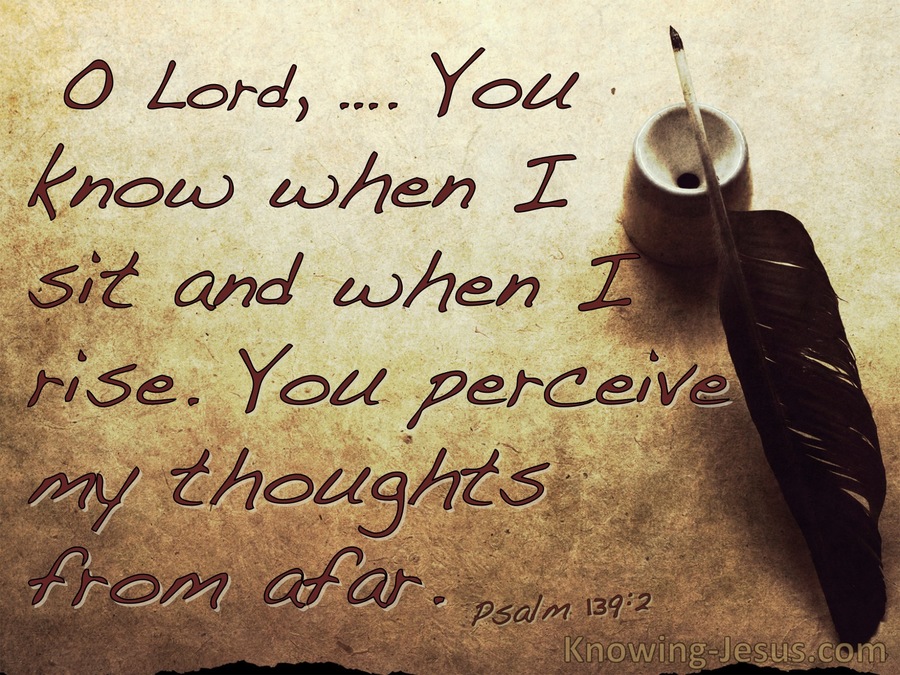 O Lord, .... You
know when I
sit and when I
rise. You perceive
my thoughts
from afar.
Psalm 139:2
Knowing-Jesus.com